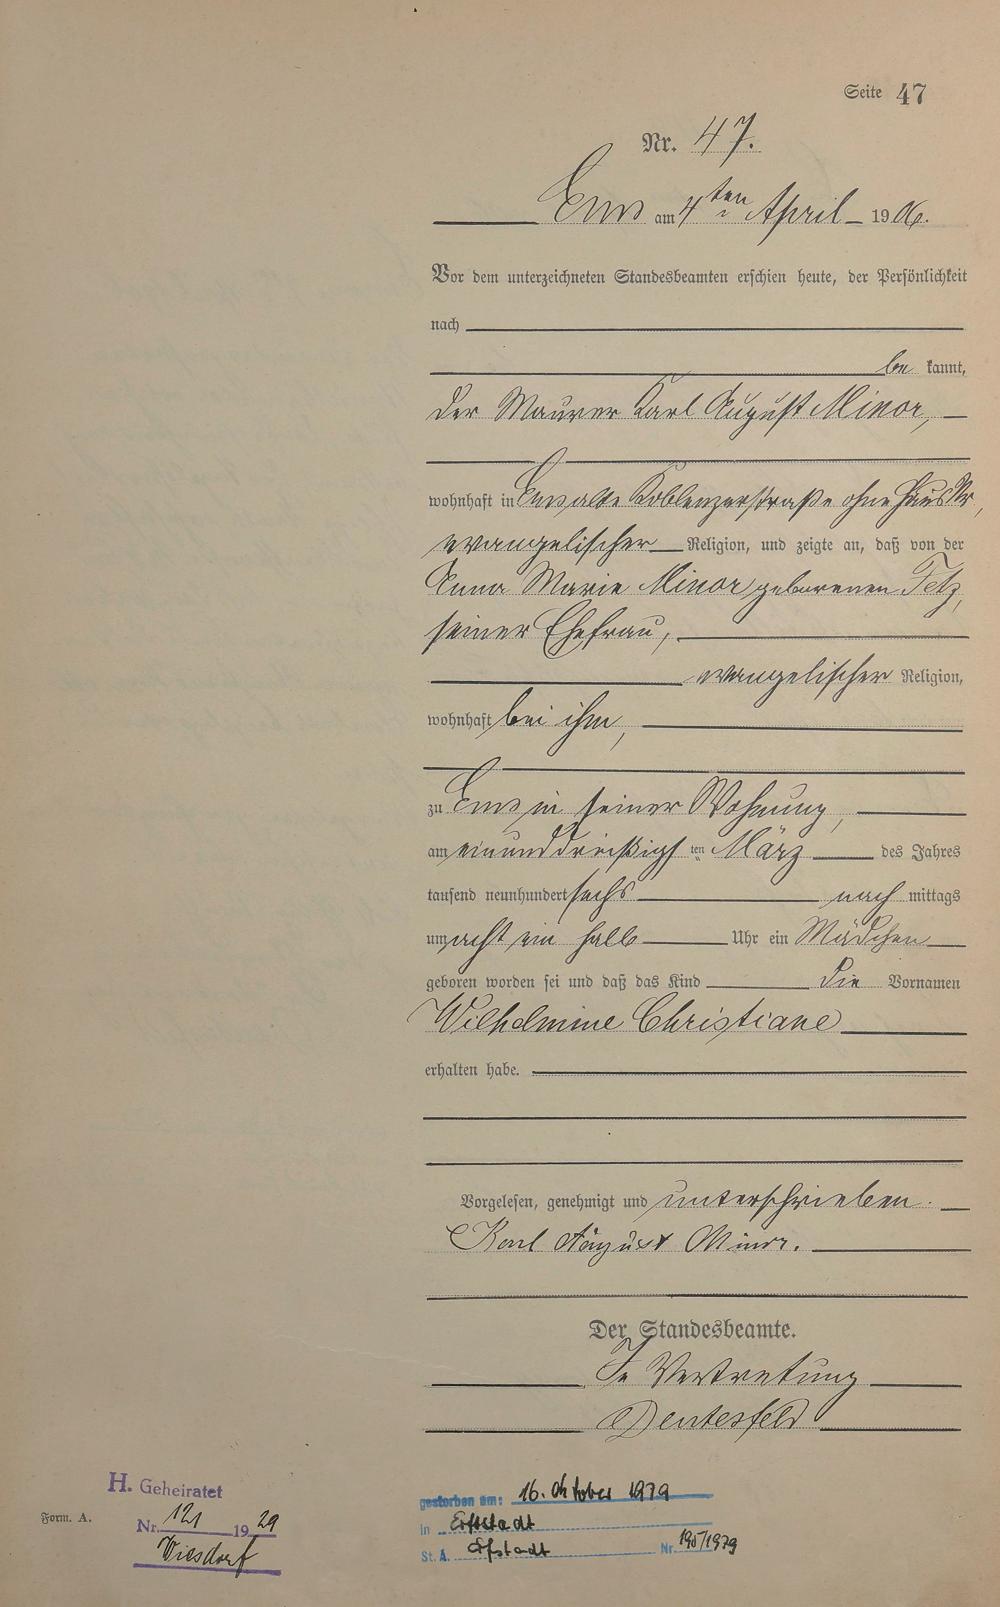 Seite 47
Nr. 47.
Ems am 4ten April 1906.
Vor dem unterzeichneten Standesbeamten erschien heute, der Persönlichkeit
nach
be kannt,
der Maurer Karl August Minor,
wohnhaft in Ems alte Koblenzerstraße ohne Haus Nr,
evangelischer Religion, und zeigte an, daß von der
Anna Marie Minor geborenen Fetz,
seiner Ehefrau,
evangelischer Religion,
wohnhaft bei ihm,
zu Ems in seiner Wohnung,
am einunddreißigsten März des Jahres
tausend neunhundert sechs nach mittags
um acht ein halb Uhr ein Mädchen
geboren worden sei und daß das Kind die Vornamen
Wilhelmine Christiane
erhalten habe.
Vorgelesen, genehmigt und unterschrieben.
Karl August Minor.
Der Standesbeamte.
In Vertretung
H. Geheiratet
Nr. 121 1929
Wiesdorf
Form. A.
gestorben am: 16. Oktober 1979
in Erftstadt
St. A. Erfstadt Nr. 190/1979